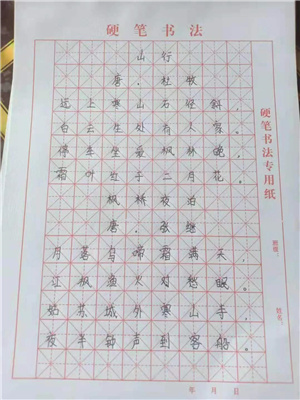 硬笔书法
山行
唐·杜牧
远上寒山石径斜，
白云生处有人家。
停车坐爱枫林晚，
霜叶红于二月花。
枫桥夜泊
唐·张继
月落乌啼霜满天，
江枫渔火对愁眠。
姑苏城外寒山寺，
夜半钟声到客船。
硬笔书法专用纸
姓名：
年 月 日